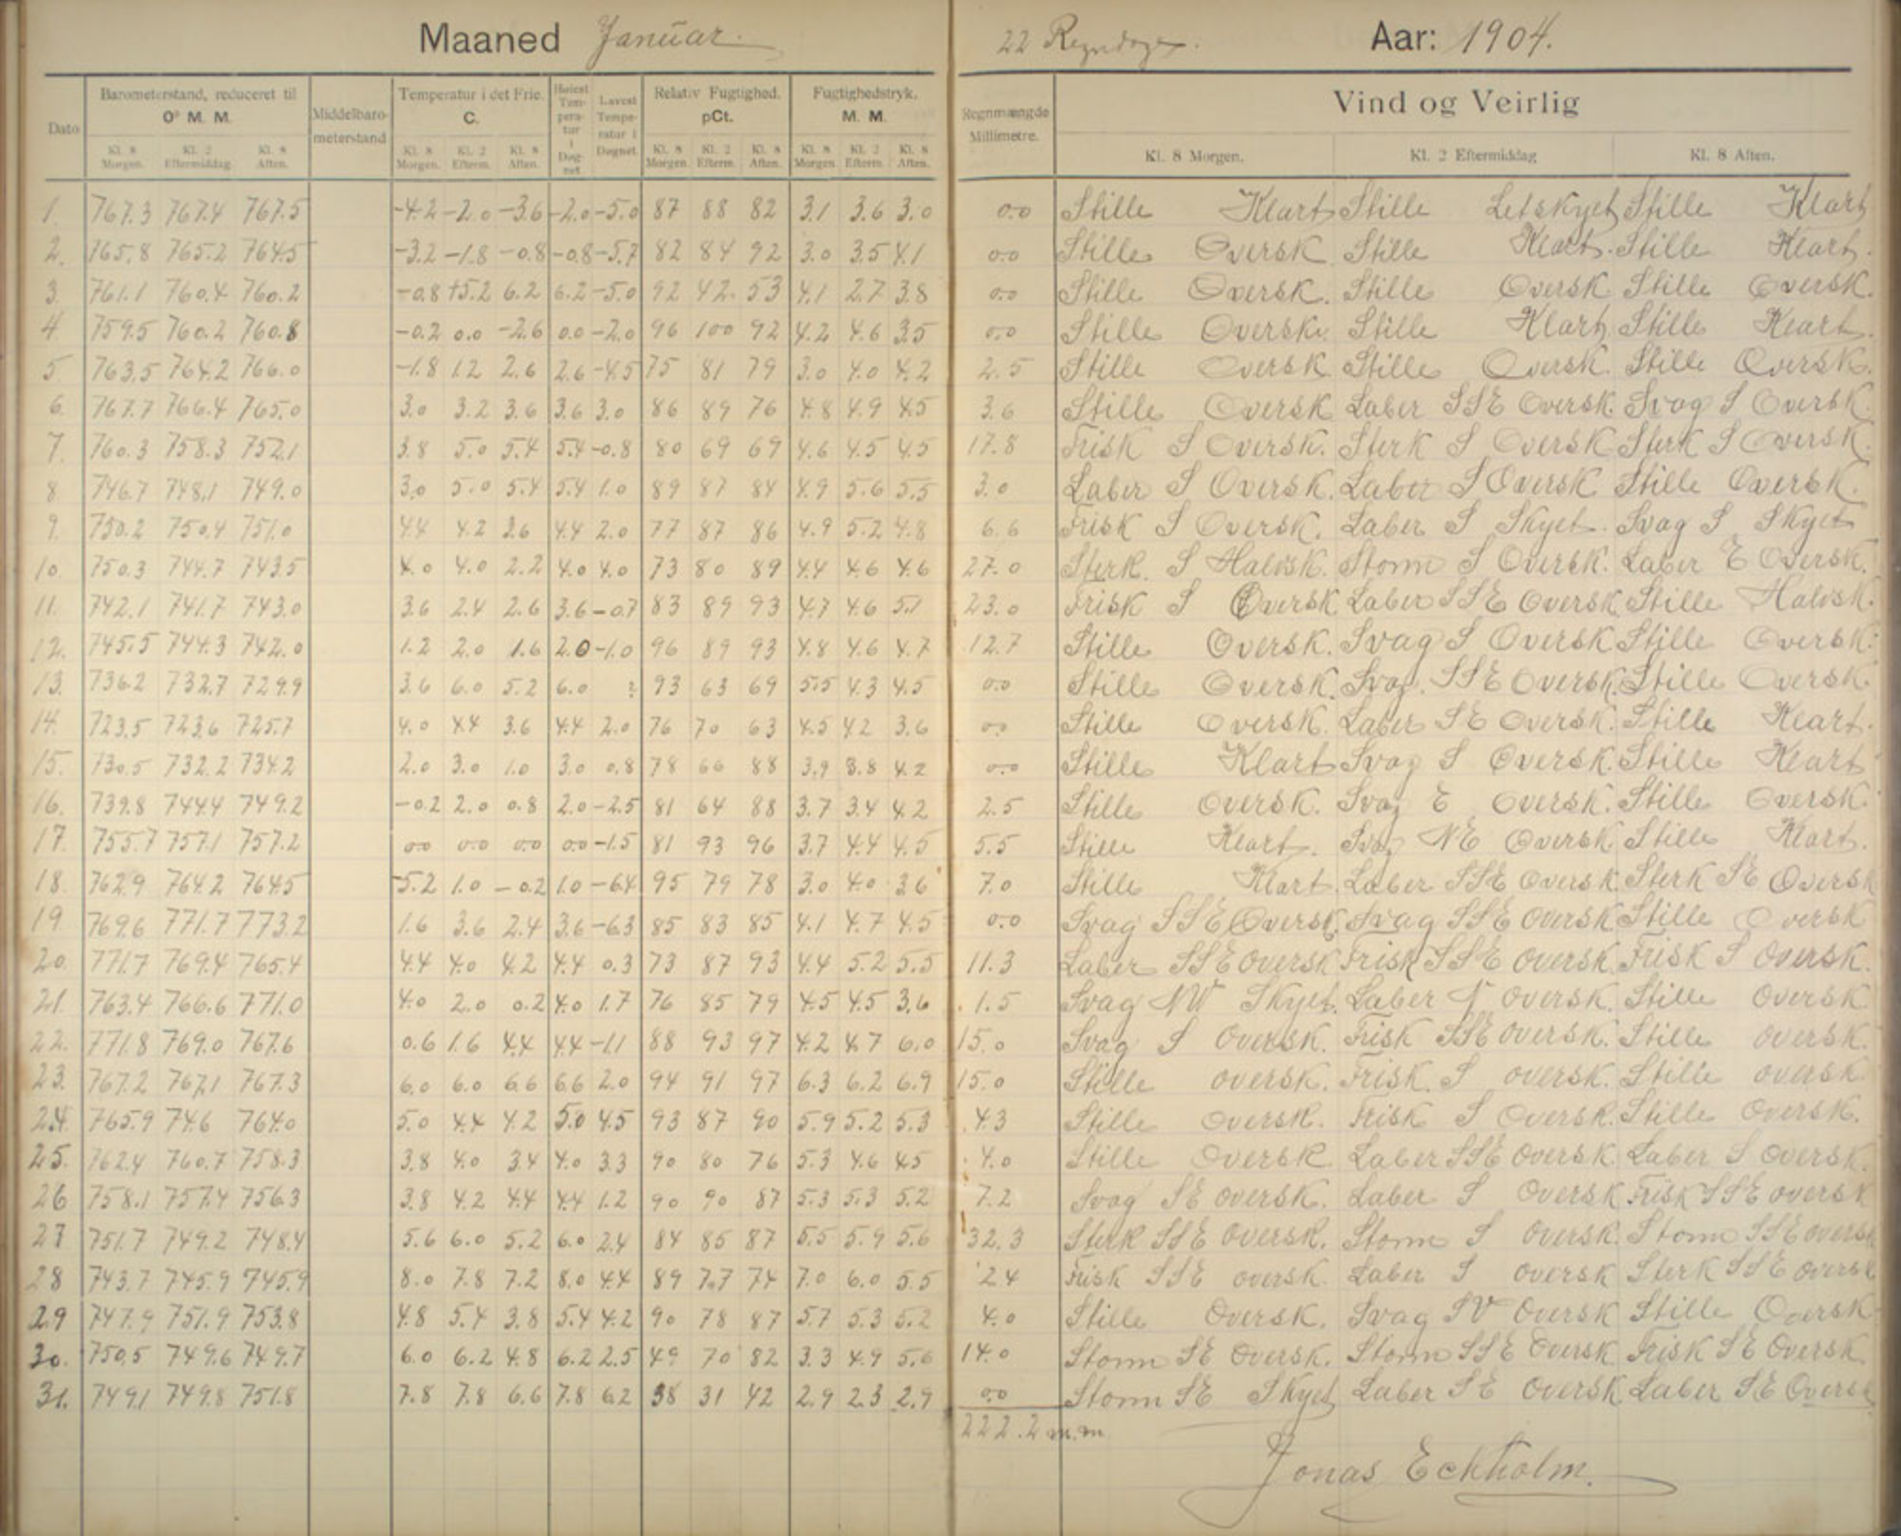 Maaned Januar. 22 Regndage. Aar: 1904.
Dato Barometerstand, reduceret til 0° M. M. Middelbarometerstand Temperatur i det Frie. C. Høiest Temperatur i Døgnet Lavest Temperatur i Døgnet Relativ Fugtighed. pCt. Fugtighedstryk. M. M. Regnmængde Millimetre. Vind og Veirlig
Kl. 8 Morgen. Kl. 2 Eftermiddag. Kl. 8 Aften. Kl. 8 Morgen. Kl. 2 Efterm. Kl. 8 Aften. Kl. 8 Morgen. Kl. 2 Efterm. Kl. 8 Aften. Kl. 8 Morgen. Kl. 2 Efterm. Kl. 8 Aften. Kl. 8 Morgen. Kl. 2 Eftermiddag Kl. 8 Aften.
1. 767.3 767.4 767.5 -4.2 -2.0 -3.6 -2.0 -5.0 87 88 82 3.1 3.6 3.0 0.0 Stille Klart Stille Letskyet Stille Klart
2. 765.8 765.2 764.5 -3.2 -1.8 -0.8 -0.8 -5.7 82 84 92 3.0 3.5 4.1 0.0 Stille Oversk. Stille Klart. Stille Klart.
3. 761.1 760.4 760.2 -0.8 +5.2 6.2 6.2 -5.0 92 42. 53 4.1 2.7 3.8 0.0 Stille Oversk. Stille Oversk Stille Oversk.
4. 759.5 760.2 760.8 -0.2 0.0 -2.6 0.0 -2.0 96 100 92 4.2 4.6 3.5 0.0 Stille Oversk. Stille Klart Stille Klart.
5. 763.5 764.2 766.0 -1.8 1.2 2.6 2.6 -4.5 75 81 79 3.0 4.0 4.2 2.5 Stille Oversk Stille Oversk. Stille Oversk.
6. 767.7 766.4 765.0 3.0 3.2 3.6 3.6 3.0 86 89 76 4.8 4.9 4.5 3.6 Stille Oversk Laber SSE Oversk. Svag S Oversk.
7. 760.3 758.3 752.1 3.8 5.0 5.4 5.4 -0.8 80 69 69 4.6 4.5 4.5 17.8 Frisk S Oversk. Sterk S Oversk Sterk S Oversk.
8. 746.7 748.1 749.0 3.0 5.0 5.4 5.4 1.0 89 87 84 4.9 5.6 5.5 3.0 Laber S Oversk. Laber S Oversk Stille Oversk.
9. 750.2 750.4 751.0 4.4 4.2 3.6 4.4 2.0 77 87 86 4.9 5.2 4.8 6.6 Frisk S Oversk. Laber S Skyet. Svag S Skyet
10. 750.3 744.7 743.5 4.0 4.0 2.2 4.0 4.0 73 80 89 4.4 4.6 4.6 27.0 Sterk. S Halvsk. Storm S Oversk. Laber E Oversk.
11. 742.1 741.7 743.0 3.6 2.4 2.6 3.6 -0.7 83 89 93 4.7 4.6 5.1 23.0 Frisk S Oversk Laber SSE Oversk Stille Halvsk.
12. 745.5 744.3 742.0 1.2 2.0 1.6 2.0 -1.0 96 89 93 4.8 4.6 4.7 12.7 Stille Oversk. Svag S Oversk Stille Oversk.
13. 736.2 732.7 729.9 3.6 6.0 5.2 6.0 ? 93 63 69 5.5 4.3 4.5 0.0 Stille Oversk. Svag. SSE Oversk. Stille Oversk.
14. 723.5 723.6 725.7 4.0 4.4 3.6 4.4 2.0 76 70 63 4.5 4.2 3.6 0.0 Stille Oversk. Laber SE Oversk. Stille Klart.
15. 730.5 732.2 734.2 2.0 3.0 1.0 3.0 0.8 78 66 88 3.9 3.8 4.2 0.0 Stille Klart Svag S Oversk. Stille Klart
16. 739.8 744.4 749.2 -0.2 2.0 0.8 2.0 -2.5 81 64 88 3.7 3.4 4.2 2.5 Stille Oversk. Svag E Oversk. Stille Oversk.
17. 755.7 757.1 757.2 0.0 0.0 0.0 0.0 -1.5 81 93 96 3.7 4.4 4.5 5.5 Stille Klart. Svag NE Oversk Stille Klart.
18. 762.9 764.2 764.5 -5.2 1.0 -0.2 1.0 -6.4 95 79 78 3.0 4.0 3.6 7.0 Stille Klart. Laber SSE Oversk. Sterk SE Oversk
19 769.6 771.7 773.2 1.6 3.6 2.4 3.6 -6.3 85 83 85 4.1 4.7 4.5 0.0 Svag SSE Oversk. Svag SSE Oversk Stille Oversk
20. 771.7 769.4 765.4 4.4 4.0 4.2 4.4 0.3 73 87 93 4.4 5.2 5.5 11.3 Laber SSE Oversk Frisk SSE Oversk. Frisk S Oversk.
21. 763.4 766.6 771.0 4.0 2.0 0.2 4.0 1.7 76 85 79 4.5 4.5 3.6 1.5 Svag NW Skyet. Laber N Oversk. Stille Oversk
22. 771.8 769.0 767.6 0.6 1.6 4.4 4.4 -1.1 88 93 97 4.2 4.7 6.0 15.0 Svag S Oversk. Frisk SSE Oversk. Stille Oversk.
23. 767.2 767.1 767.3 6.0 6.0 6.6 6.6 2.0 94 91 97 6.3 6.2 6.9 15.0 Stille Oversk. Frisk. S Oversk. Stille Oversk
24. 765.9 74.6 764.0 5.0 4.4 4.2 5.0 4.5 93 87 90 5.9 5.2 5.3 4.3 Stille Oversk. Frisk S Oversk. Stille Oversk.
25. 762.4 760.7 758.3 3.8 4.0 3.4 4.0 3.3 90 80 76 5.3 4.6 4.5 4.0 Stille Oversk Laber SSE Oversk. Laber S Oversk.
26 758.1 757.4 756.3 3.8 4.2 4.4 4.4 1.2 90 90 87 5.3 5.3 5.2 7.2 Svag SE Oversk. Laber S Oversk Frisk SSE Oversk
27 751.7 749.2 748.4 5.6 6.0 5.2 6.0 2.4 84 85 87 5.5 5.9 5.6 32.3 Sterk SSE Oversk. Storm S Oversk. Storm SSE Oversk
28 743.7 745.9 745.9 8.0 7.8 7.2 8.0 4.4 89 77 74 7.0 6.0 5.5 2.4 Frisk SSE Oversk. Laber S Oversk Sterk SSE Oversk
29 747.9 751.9 753.8 4.8 5.4 3.8 5.4 4.2 90 78 87 5.7 5.3 5.2 4.0 Stille Oversk. Svag SV Oversk Stille Oversk
30. 750.5 749.6 749.7 6.0 6.2 4.8 6.2 2.5 49 70 82 3.3 4.9 5.6 14.0 Storm SE Oversk. Storm SSE Oversk Frisk SE Oversk.
31. 749.1 749.8 751.8 7.8 7.8 6.6 7.8 6.2 38 31 42 2.9 2.3 2.9 0.0 Storm SE Skyet Laber SE Oversk Laber SE Oversk
222.2 m.m
Jonas Eckholm.